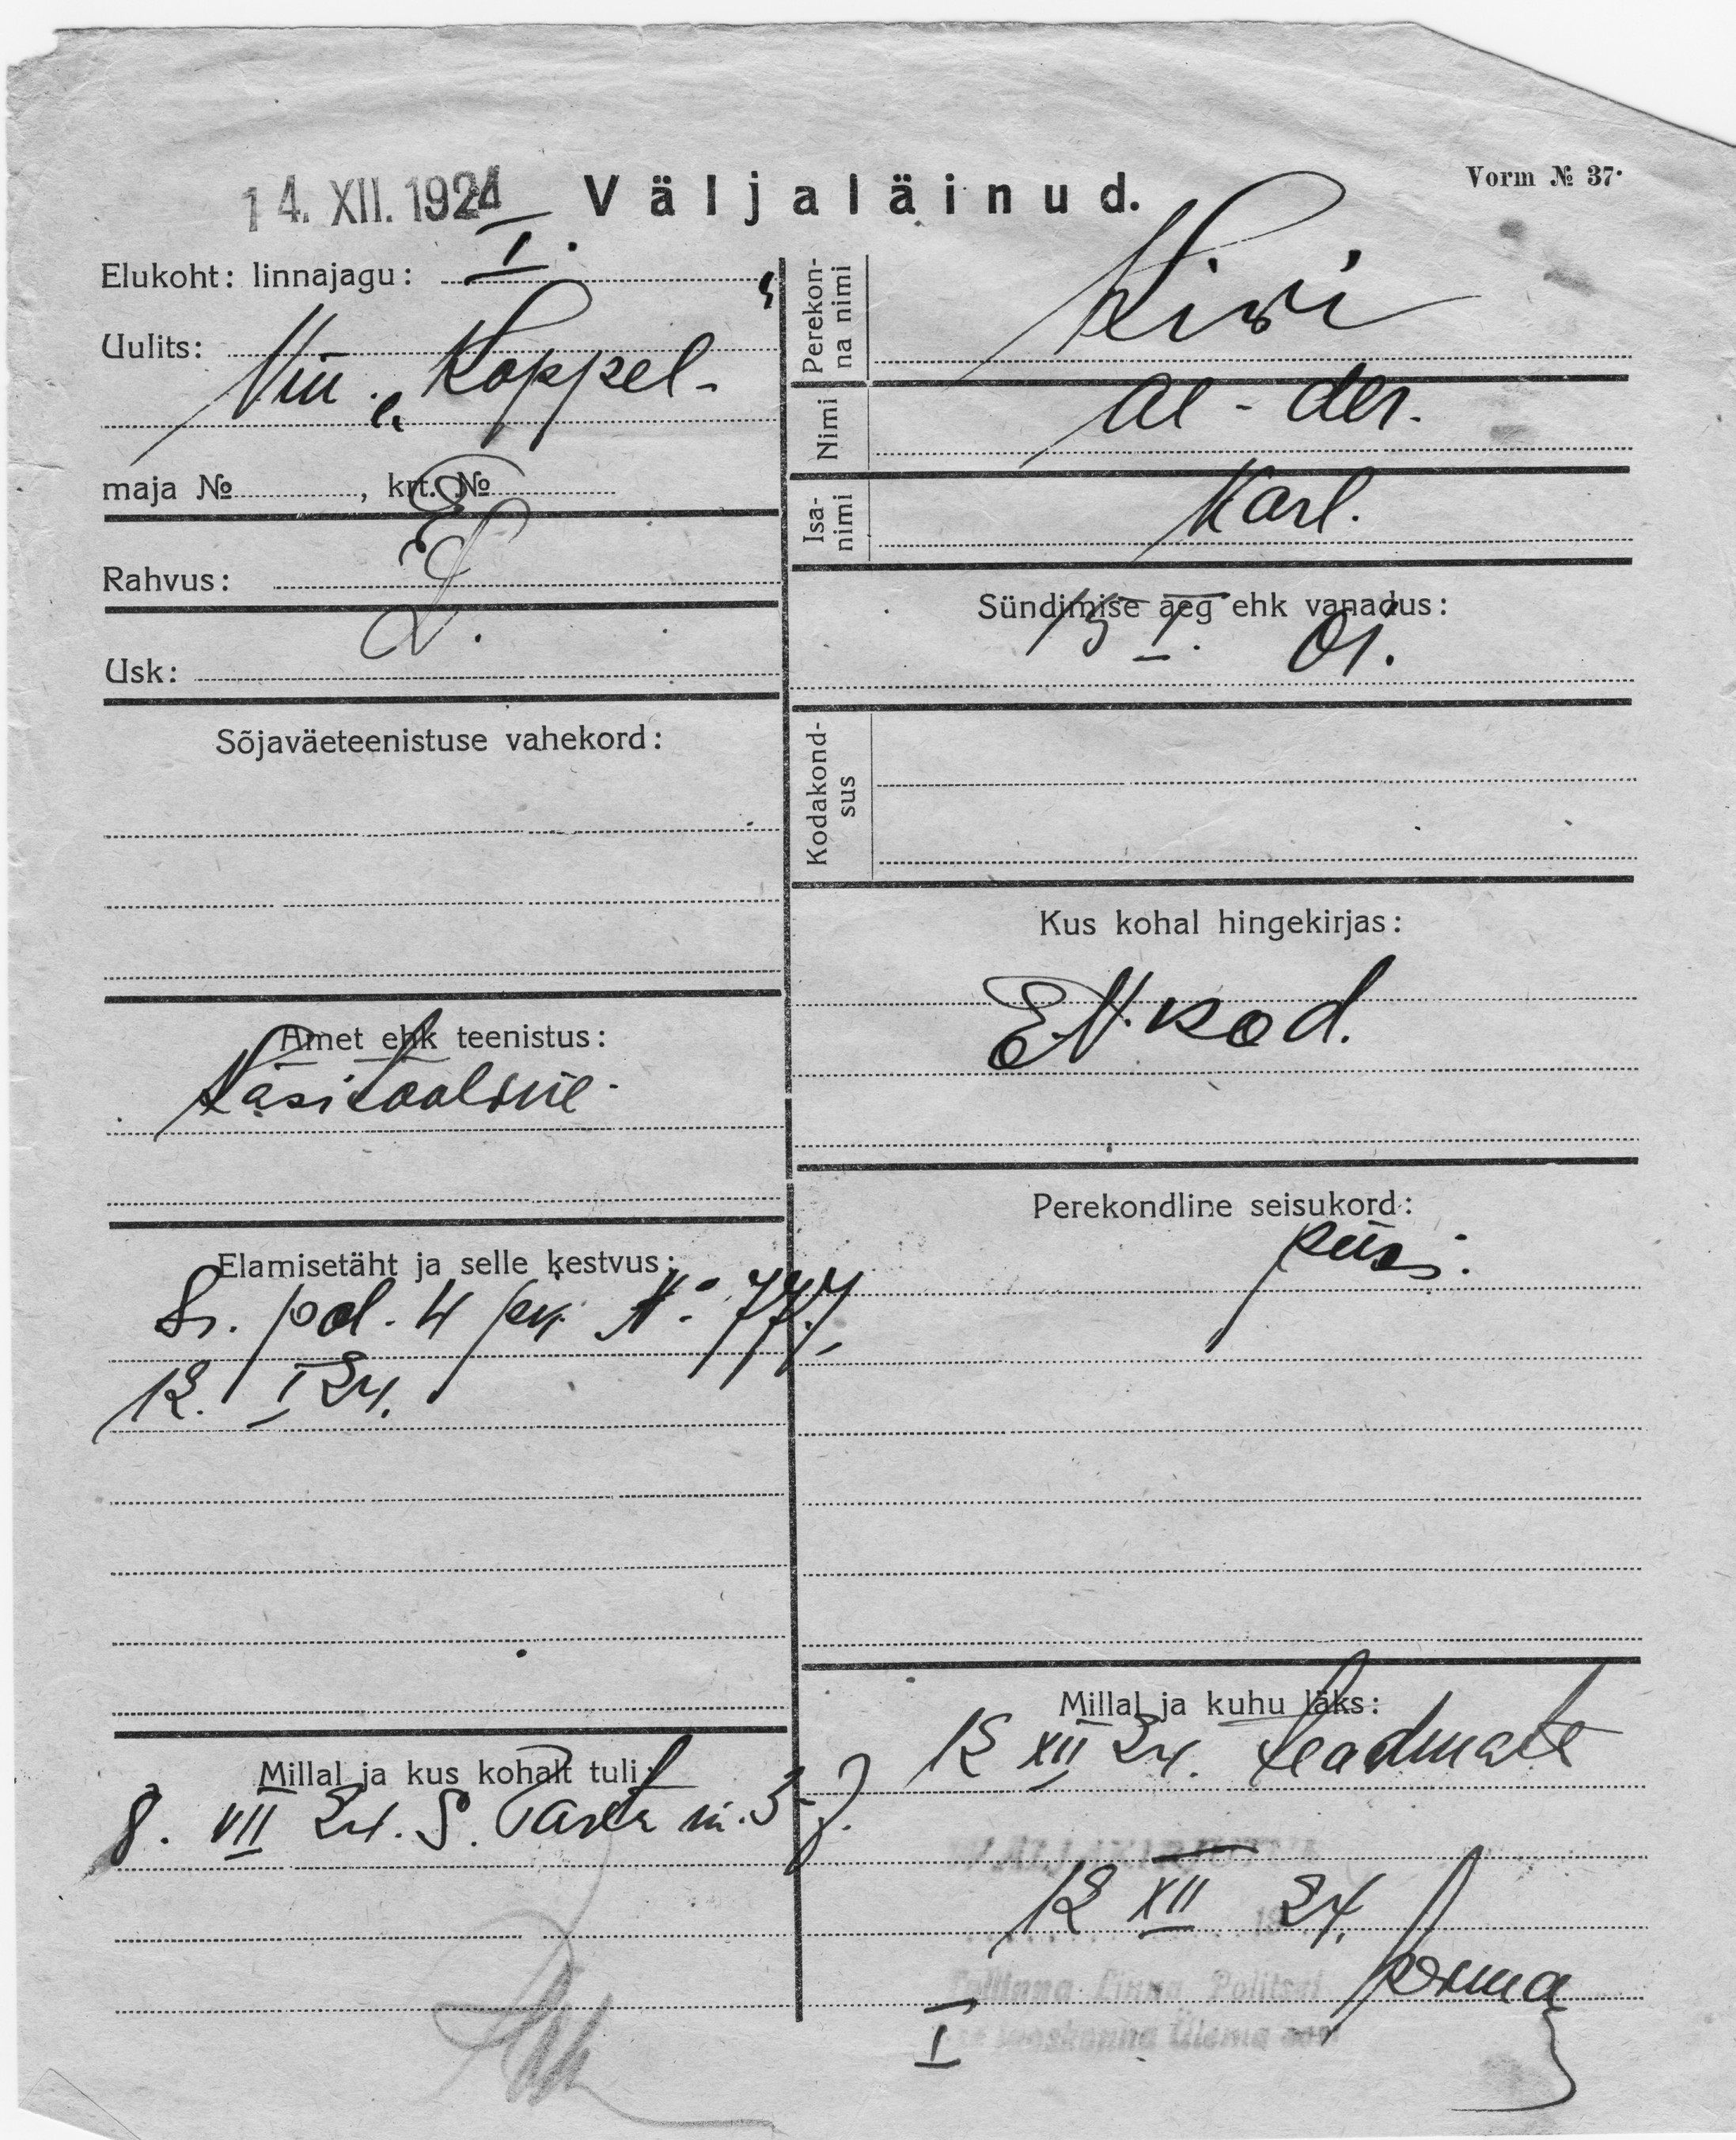 14. XII. 1924 Väljaläinud.
Vorm № 37.
Elukoht: linnajagu: I.
Uulits:
Vin. „Koppel-"
maja № , krt. №
Rahvus: E
Usk: L.
Sõjaväeteenistuse vahekord:
Amet ehk teenistus:
Käsitööline
Elamisetäht ja selle kestvus:
pol. 4 № 777,
12. I 24.
Millal ja kus kohalt tuli:
8. VII 24. S. Tartu m. 3-
Perekon-
na nimi
Kivi
Nimi
Al-der.
Isa-
nimi
Karl.
Sündimise aeg ehk vanadus:
15 I. 01.
Kodakond-
sus
Kus kohal hingekirjas:
E.V. kod.
Perekondline seisukord:
Millal ja kuhu läks:
12 XII 24. teadmata
12 XII 24.
Tallinna Linna Politsei
I jaoskonna Ülema